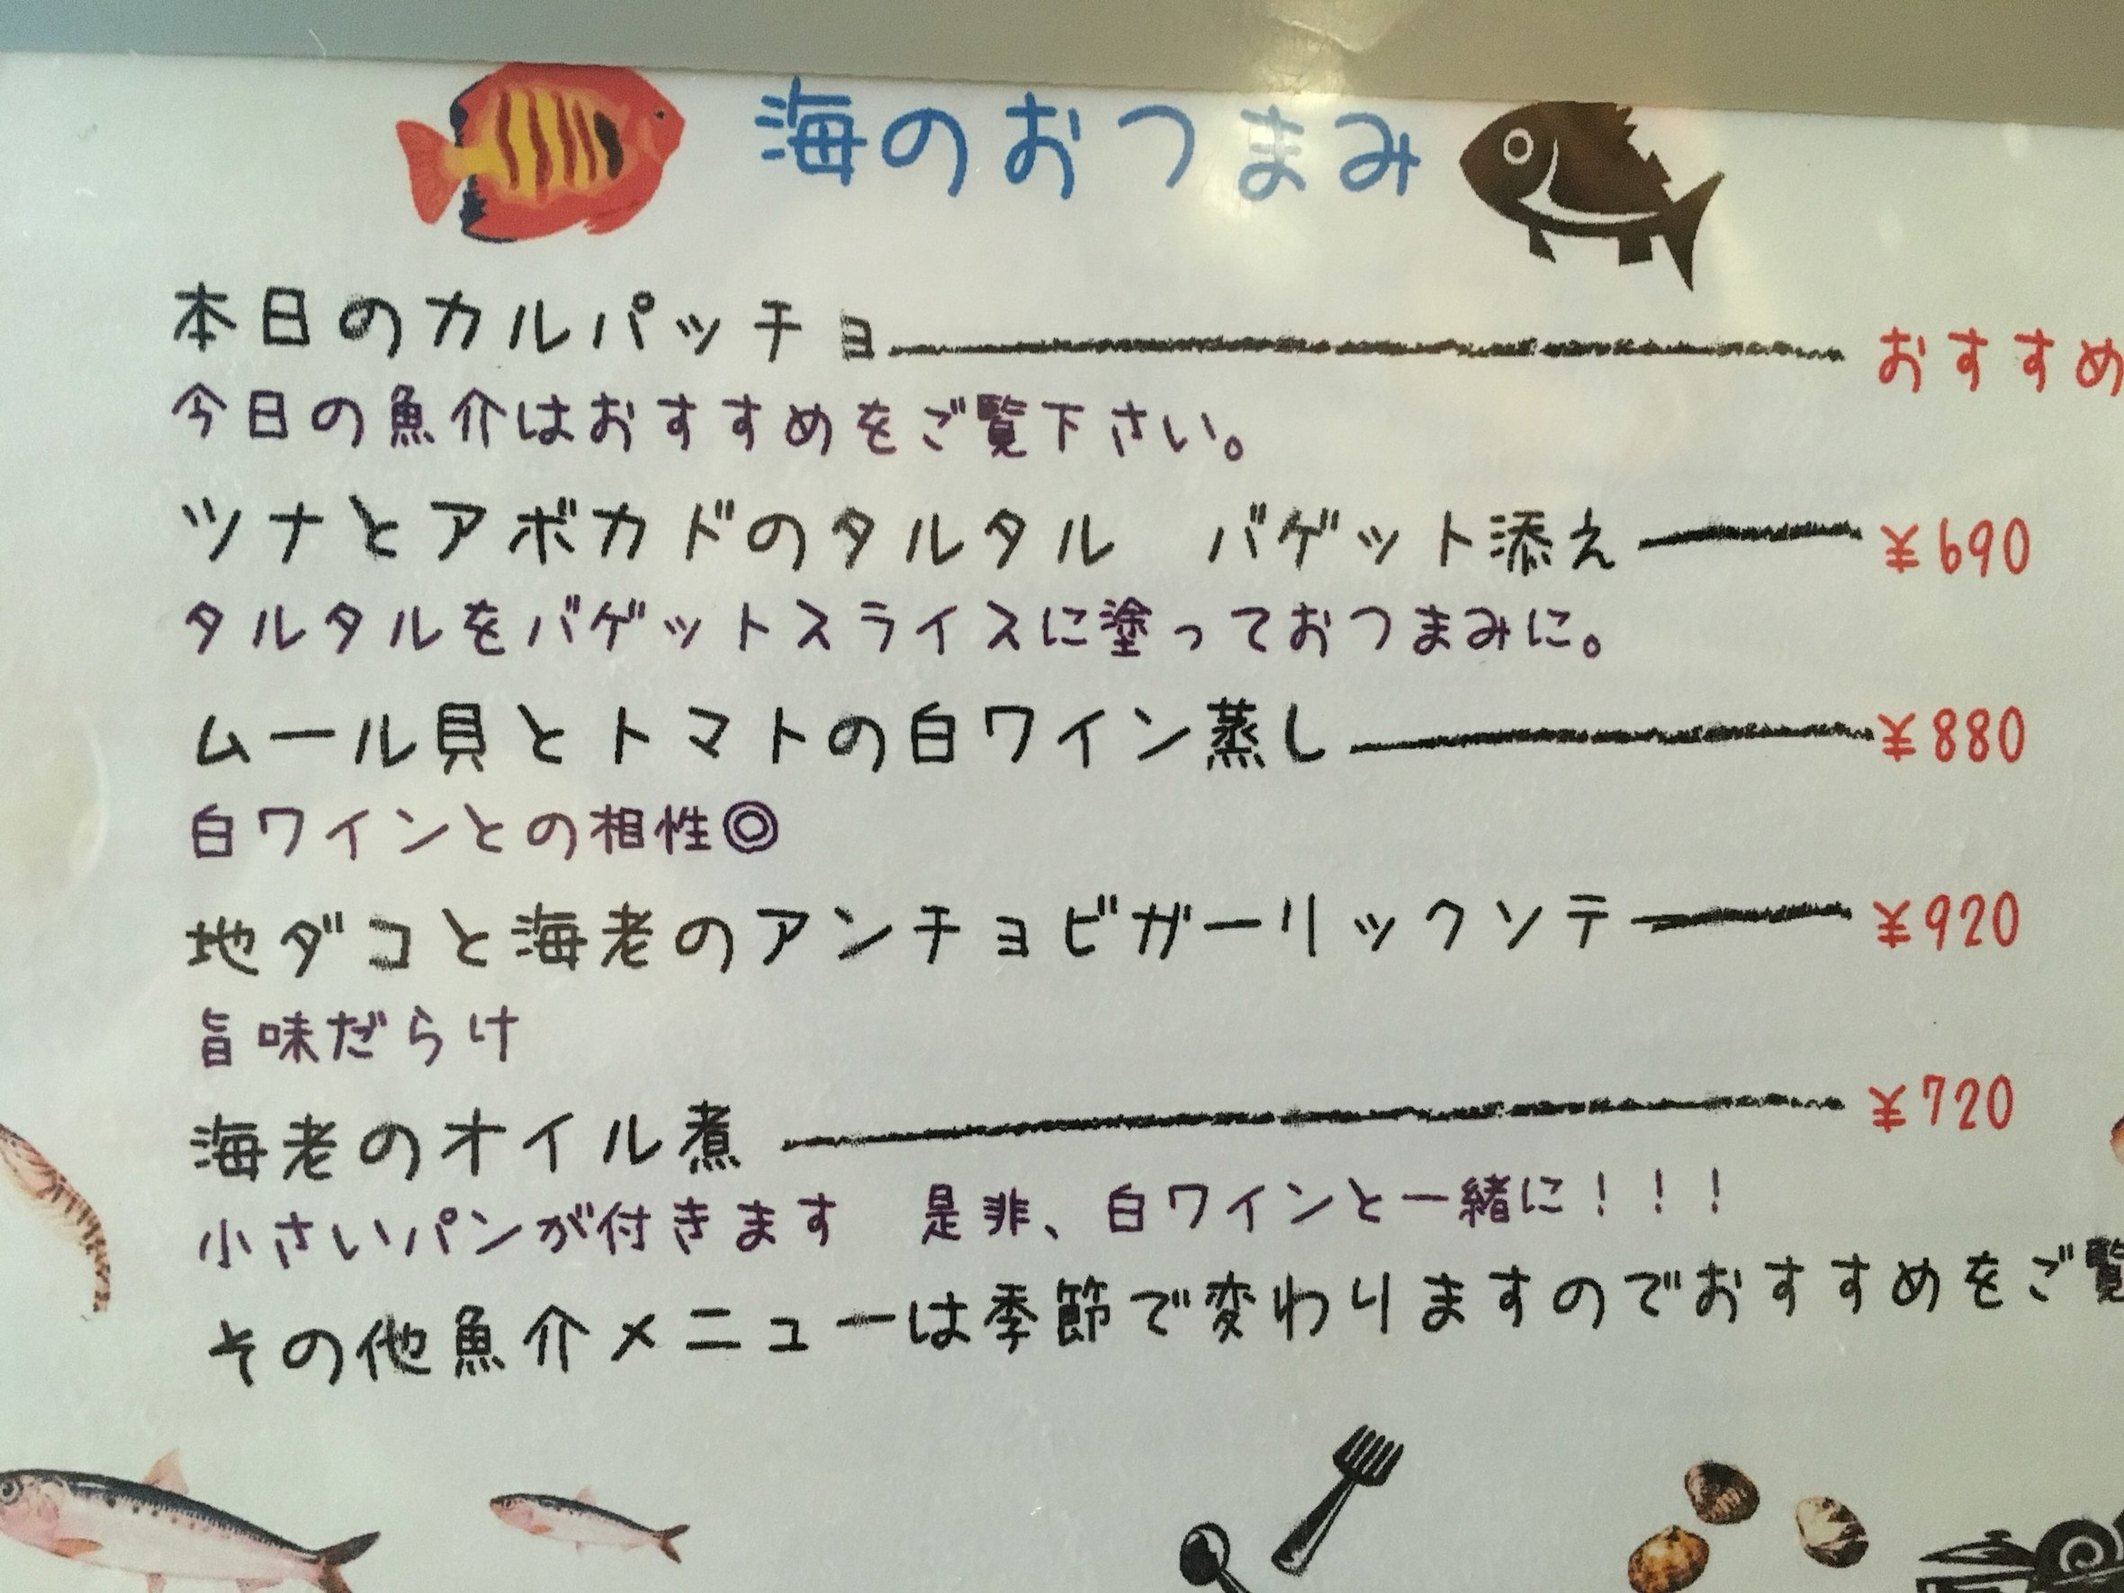 海のおつまみ
本日のカルパッチョ おすすめ
今日の魚介はおすすめをご覧下さい。
ツナとアボカドのタルタル　バゲット添え ¥690
タルタルをバゲットスライスに塗っておつまみに。
ムール貝とトマトの白ワイン蒸し ¥880
白ワインとの相性◎
地ダコと海老のアンチョビガーリックソテー ¥920
旨味だらけ
海老のオイル煮 ¥720
小さいパンが付きます　是非、白ワインと一緒に！！！
その他魚介メニューは季節で変わりますのでおすすめをご覧